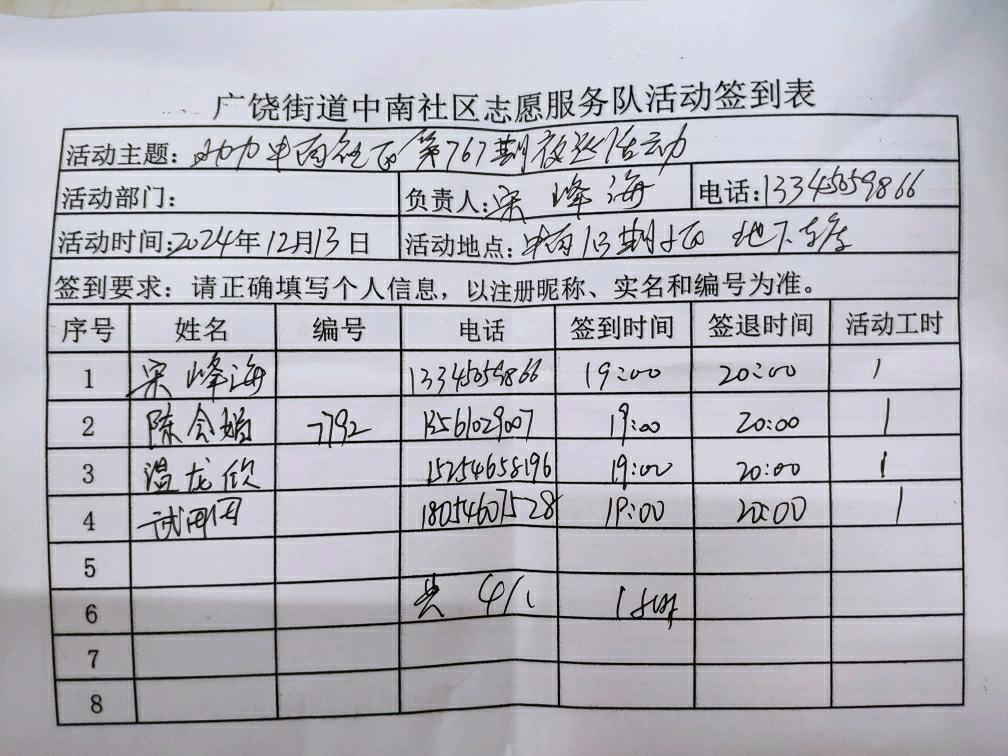 广饶街道中南社区志愿服务队活动签到表
活动主题：助力中南社区第767期夜巡活动
活动部门： 负责人：宋峰海 电话：13345059866
活动时间：2024年12月13日 活动地点：中南1.3期小区 地下车库
签到要求：请正确填写个人信息，以注册昵称、实名和编号为准。
序号 姓名 编号 电话 签到时间 签退时间 活动工时
1 宋峰海 13345059866 19:00 20:00 1
2 陈会娟 7792 13561029007 19:00 20:00 1
3 温龙欣 15254658196 19:00 20:00 1
4 18054607528 19:00 20:00 1
5
6 共 4人 1小时
7
8